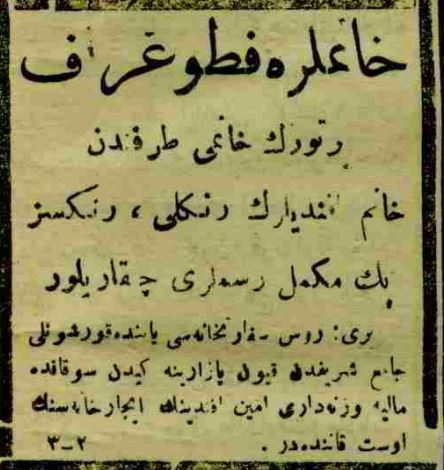 خانملره فطوغراف
بر تورك خانمى طرفندن
خانم افنديلرك رنكلى ، رنكسز
پك مكمل رسملرى چيقاريلور
يرى : روس سفارتخانه‌سى ياننده قورشونلى
جامع شريفدن قيون بازارينه كيدن سوقاقده
ماليه وزنه‌دارى امين افندينك ايجارخانه‌سنك
اوست قاتنده‌در .
٢-٣